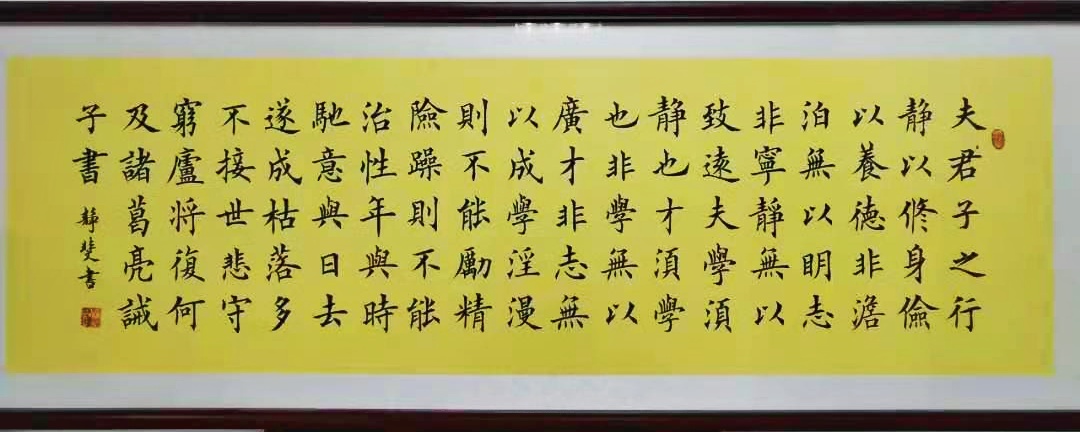 夫君子之行
静以修身儉
以養德非澹
泊無以明志
非寧静無以
致遠夫學須
静也才須學
也非學無以
廣才非志無
以成學淫漫
則不能勵精
險躁則不能
治性年與時
馳意與日去
遂成枯落多
不接世悲守
窮廬將復何
及諸葛亮誡
子書
静斐書